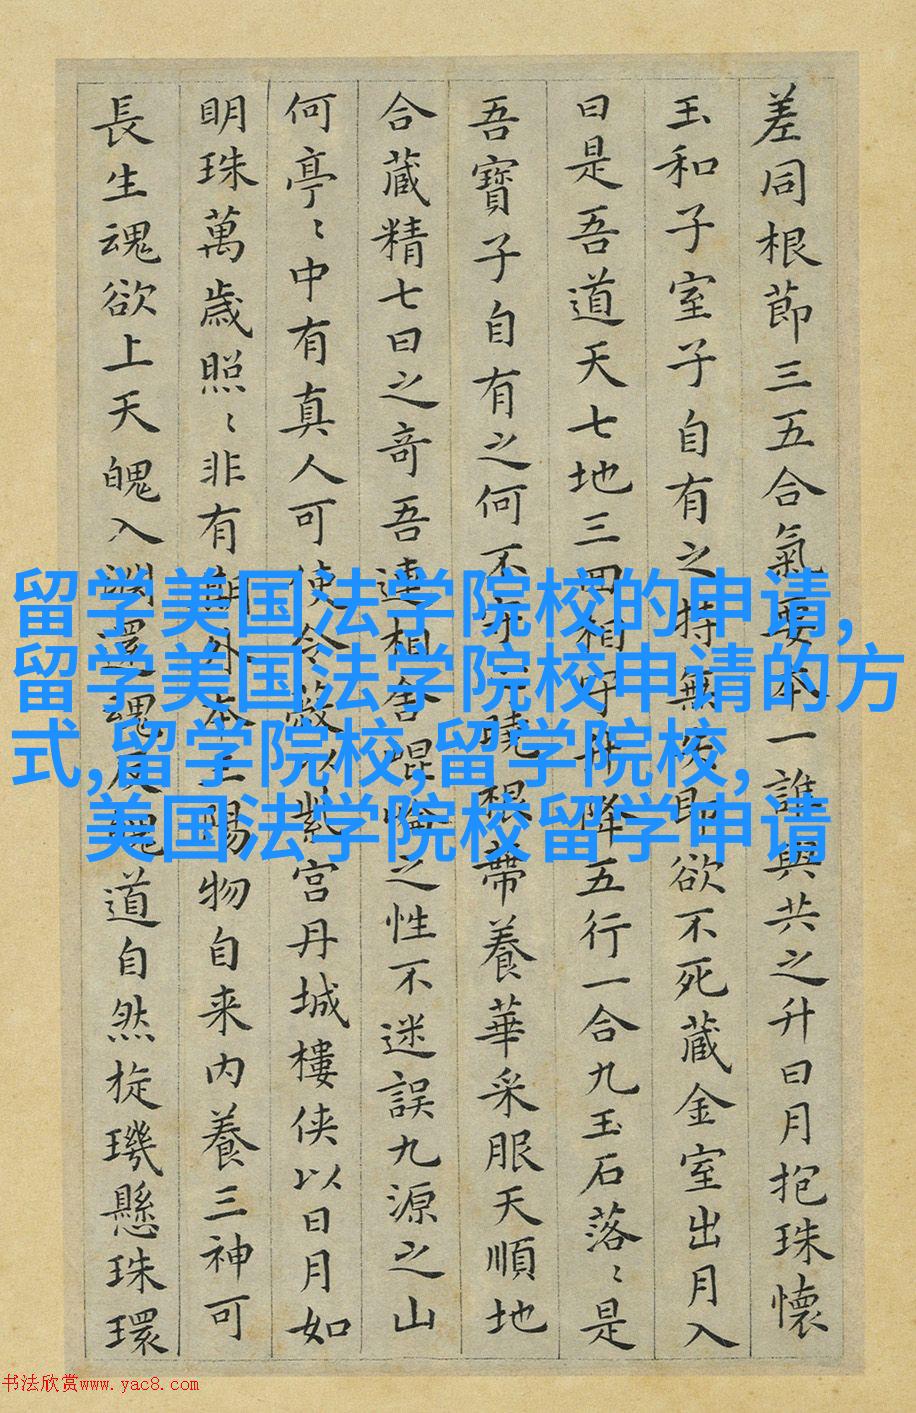 差同根節三五合氣要本一誰與共之升日月抱珠懷
玉和子室子自有之持無失即欲不死藏金室出月入
日是吾道天七地三回相守升降五行一合九玉石落〻是
吾寶子自有之何不守心曉根蒂養華采服天順地
合藏精七日之奇吾連相舍崐崘之性不迷誤九源之山
何亭〻中有真人可使令蔽以紫宫丹城樓侠以日月如
明珠萬歲照〻非有期外本三陽物自来内養三神可
長生魂欲上天魄入淵還魂反魄道自然旋璣懸珠環
留学美国法学院校的申请,
留学美国法学院校申请的方
式,留学院校,留学院校,
美国法学院校留学申请
书法欣赏www.yac8.com